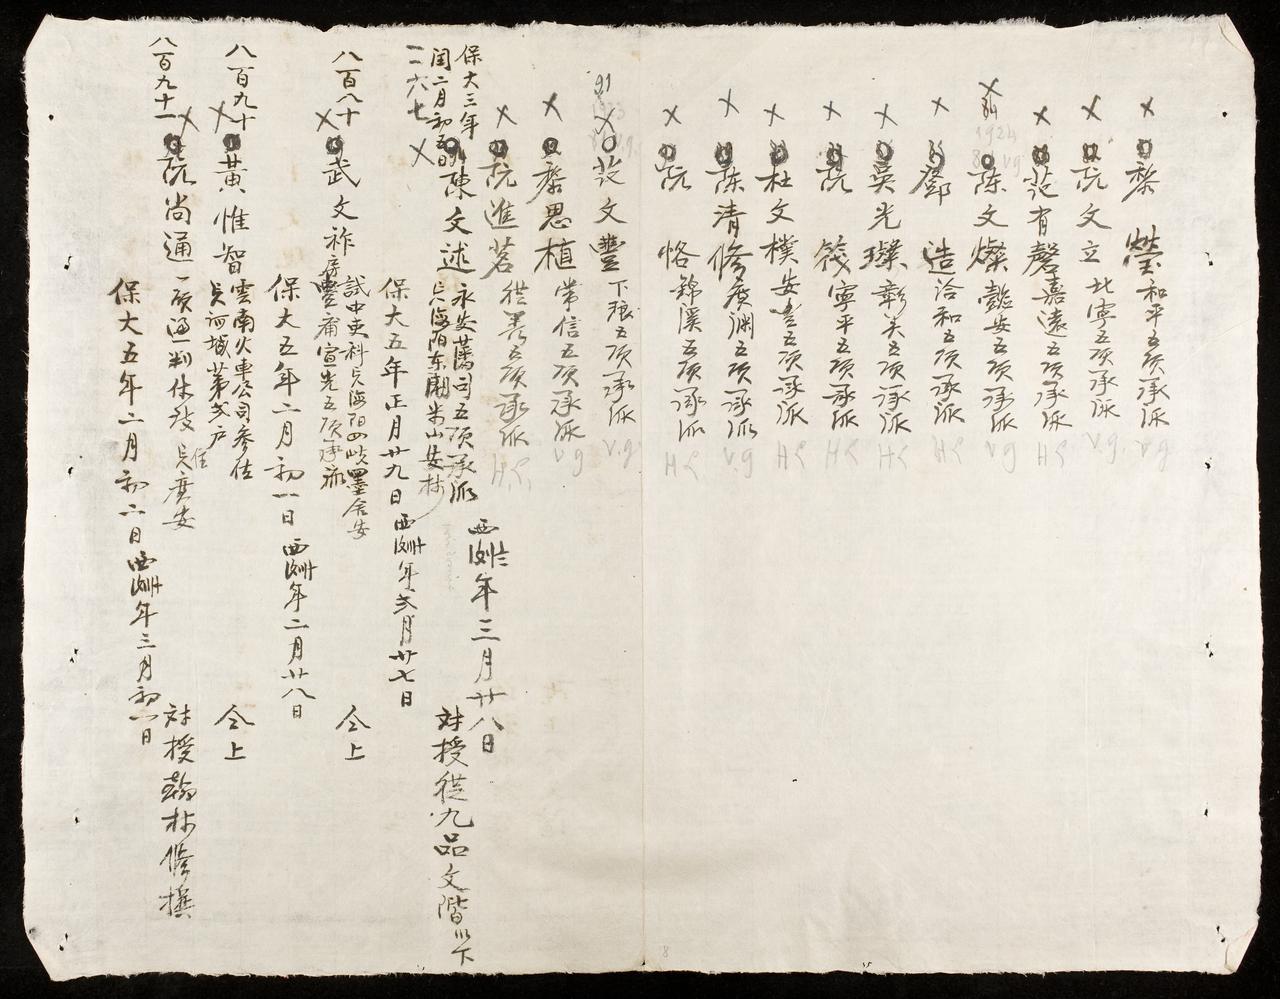 黎 瑩 和平五項承派
V.g
阮文立 北寧五項承派
V.g
范有馨 嘉遠五項承派
HL
84
1924
陳文燦 懿安五項承派
V.g
鄧造 洽和五項承派
HL
吳光璨 彰美五項承派
HL
阮筏 寧平五項承派
HL
杜文樸 安豊五項承派
HL
陳清修 廣淵五項承派
V.g
阮恪 錦溪五項承派
HL
91
文豐 下琅五項承派
V.g
黎思植 常信五項承派
V.g
阮進茗 從善五項承派
HL
保大三年
閏二月初五日
一二六七
陳文述 永安藩司五項承派
貫海陽東潮米山安林
西 年三月廿八日
対授從九品文階以下
保大五年正月廿九日 西 年弍月廿七日
八百八十
武文祚 試中吏科貫海陽四岐墨舍安
宣光五項承派
仝上
保大五年二月初一日 西 年二月廿八日
八百九十
黃惟智 雲南火車公司參佐
貫河城第弍户
仝上
八百九十一
阮尚通 一項通判休致 貫廣安
対授翰林修撰
保大五年二月初二日 西 年三月初一日
8